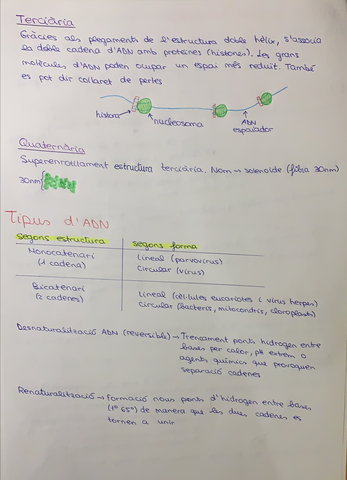 Terciària
Gràcies als plegaments de l'estructura doble hèlix, s'associa
la doble cadena d'ADN amb proteïnes (histones). Les grans
molècules d'ADN poden ocupar un espai més reduït. També
es pot dir collaret de perles
histona
nucleosoma
ADN
espaiador
Quaternària
Superenrotllament estructura terciària. Nom → solenoide (fibra 30nm)
30nm
Tipus d'ADN
segons estructura segons forma
Monocatenari Lineal (parvovirus)
(1 cadena) Circular (virus)
Bicatenari Lineal (cèl·lules eucariotes i virus herpes)
(2 cadenes) Circular (bacteris, mitocondris, cloroplasts)
Desnaturalització ADN (reversible) → Trencament ponts hidrogen entre
bases per calor, pH extrem o
agents químics que provoquen
separació cadenes
Renaturalització → Formació nous ponts d'hidrogen entre bases
(Tª 65º) de manera que les dues cadenes es
tornen a unir